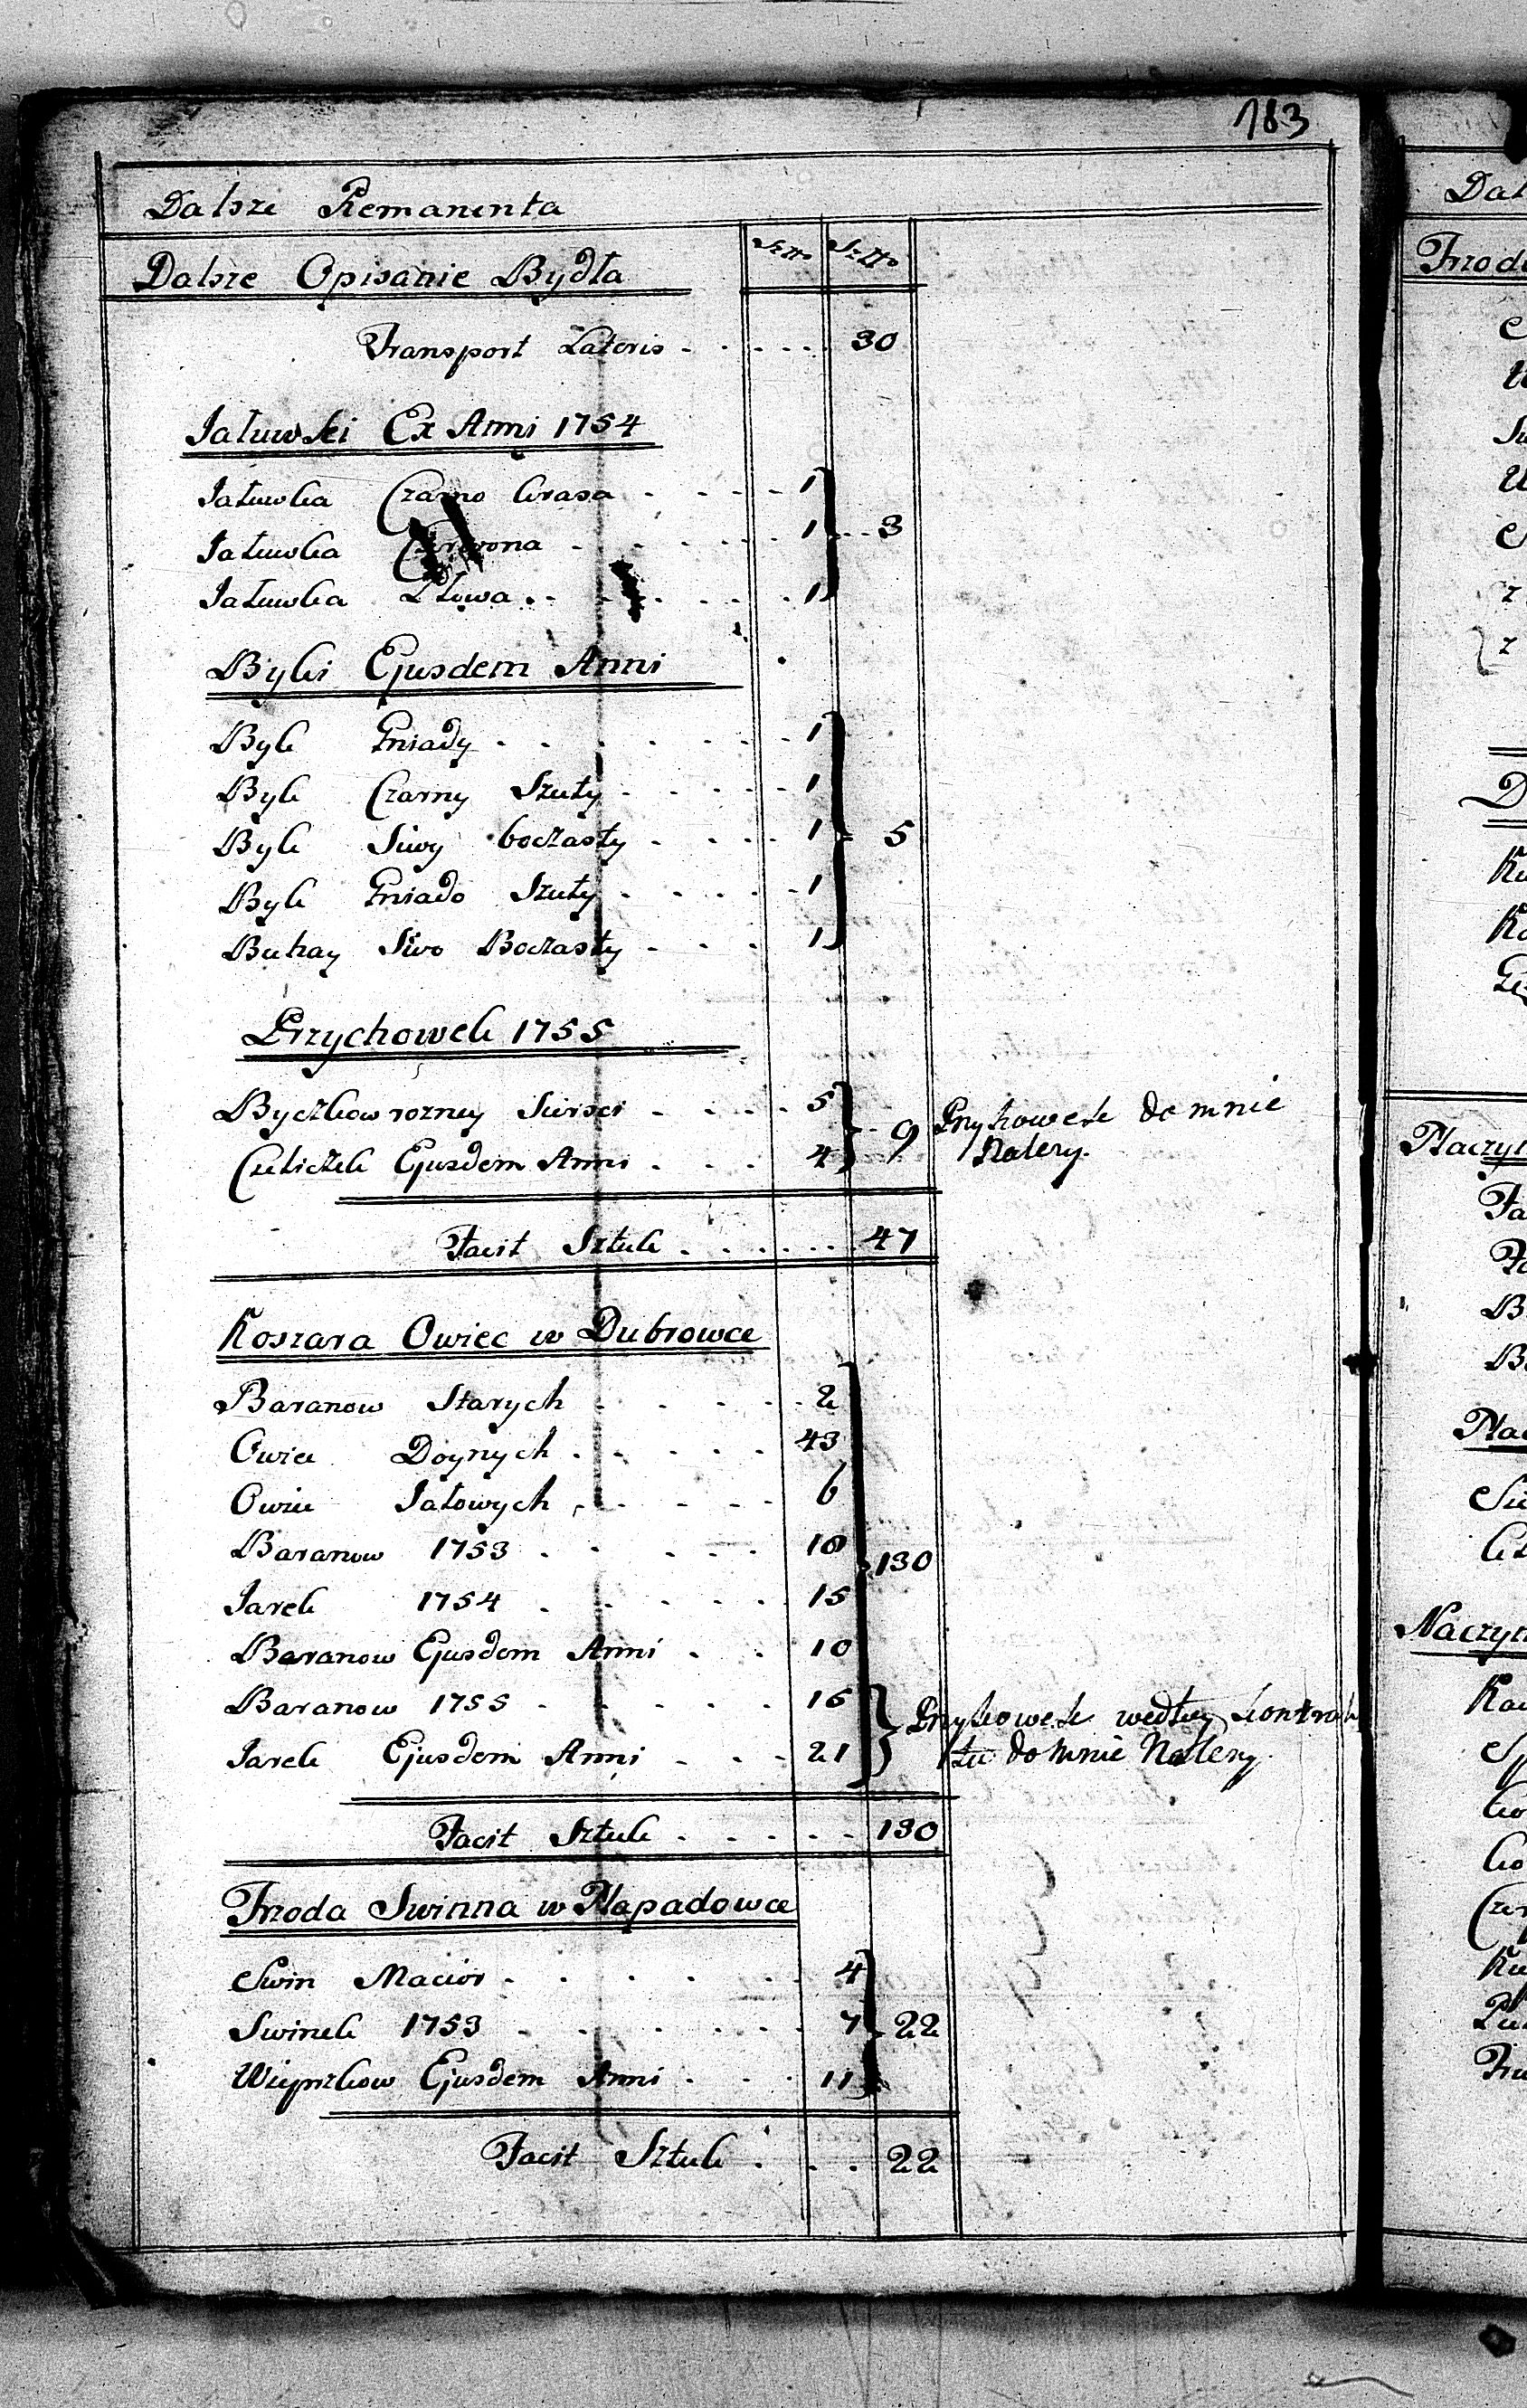 183
Dalsze Remanenta
Dalsze Opisanie Bydła
Sztk Sztk
Transport Lateris - - - - - 30
Jałuwski Ex Anni 1754
Jałuwka Czarno krasa - - - - 1
Jałuwka - - - - - 1 - - 3
Jałuwka Płowa - - - - - - 1
Byki Ejusdem Anni
Byk Gniady - - - - - - 1
Byk Czarny Szuty - - - - 1
Byk Siwy boczasty - - - - 1 - 5
Byk Gniado Szuty - - - - 1
Buhay Siwo Boczasty - - - 1
Przychowek 1755
Byczkow rozney Siersci - - - - 5
Cieliczek Ejusdem Anni - - - 4
9
Przykowek do mnie
Nalezy.
Facit Sztuk - - - - - - 47
Koszara Owiec w Dubrowce
Baranow Starych - - - - - 2
Owiec Doynych - - - - - 43
Owiec Jałowych - - - - - 6
Baranow 1753 - - - - - 18
130
Jarek 1754 - - - - - 15
Baranow Ejusdem Anni - - 10
Baranow 1755 - - - - - 15
Jarek Ejusdem Anni - - - 21
Przykowek według kontrak
tu do mnie Nalezy.
Facit Sztuk - - - - - 130
Trzoda Swinna w Napadowce
Swin Macior - - - - - - 4
Swinek 1753 - - - - - - 7 - 22
Wieprzkow Ejusdem Anni - - - 11
Facit Sztuk - - - 22